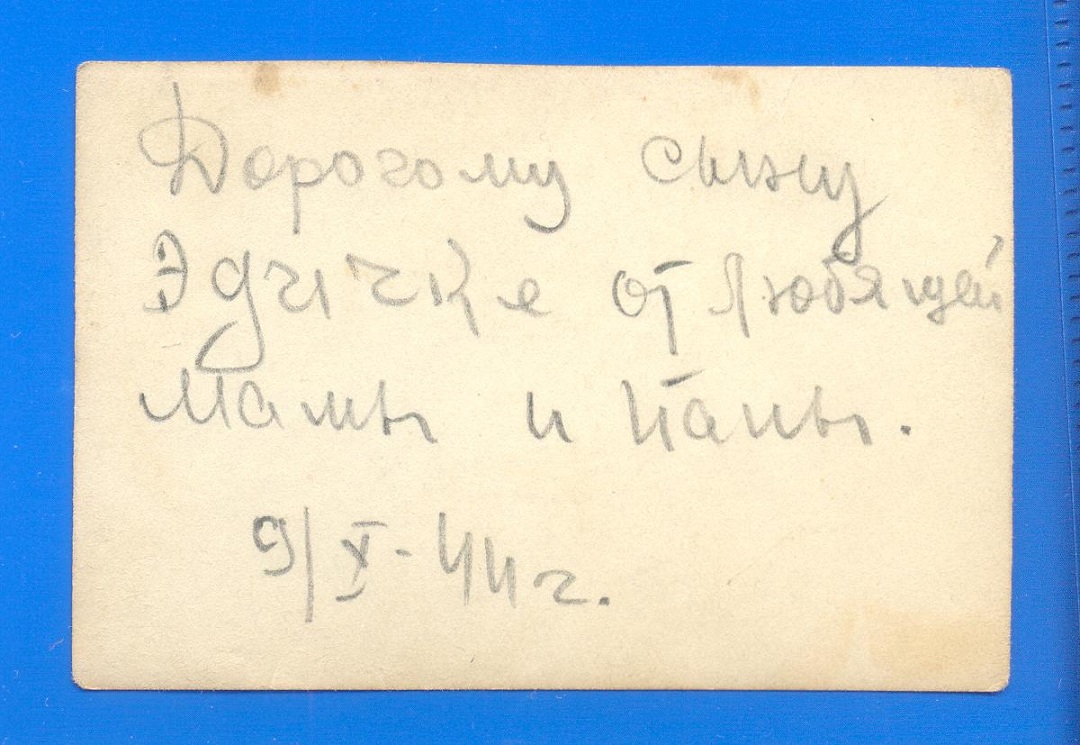 Дорогому сыну
Эдичке от любящей
Мамы и Папы.
9/X-44г.